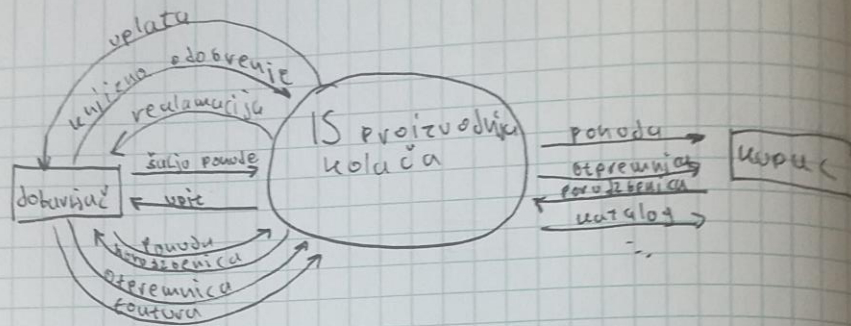 uplata
knjižno odobrenje
reklamacija
šalje ponude
upit
ponuda
narudžbenica
otpremnica
faktura
dobavljač
IS proizvodnja
kolača
ponuda
otpremnica
narudžbenica
katalog
...
kupac